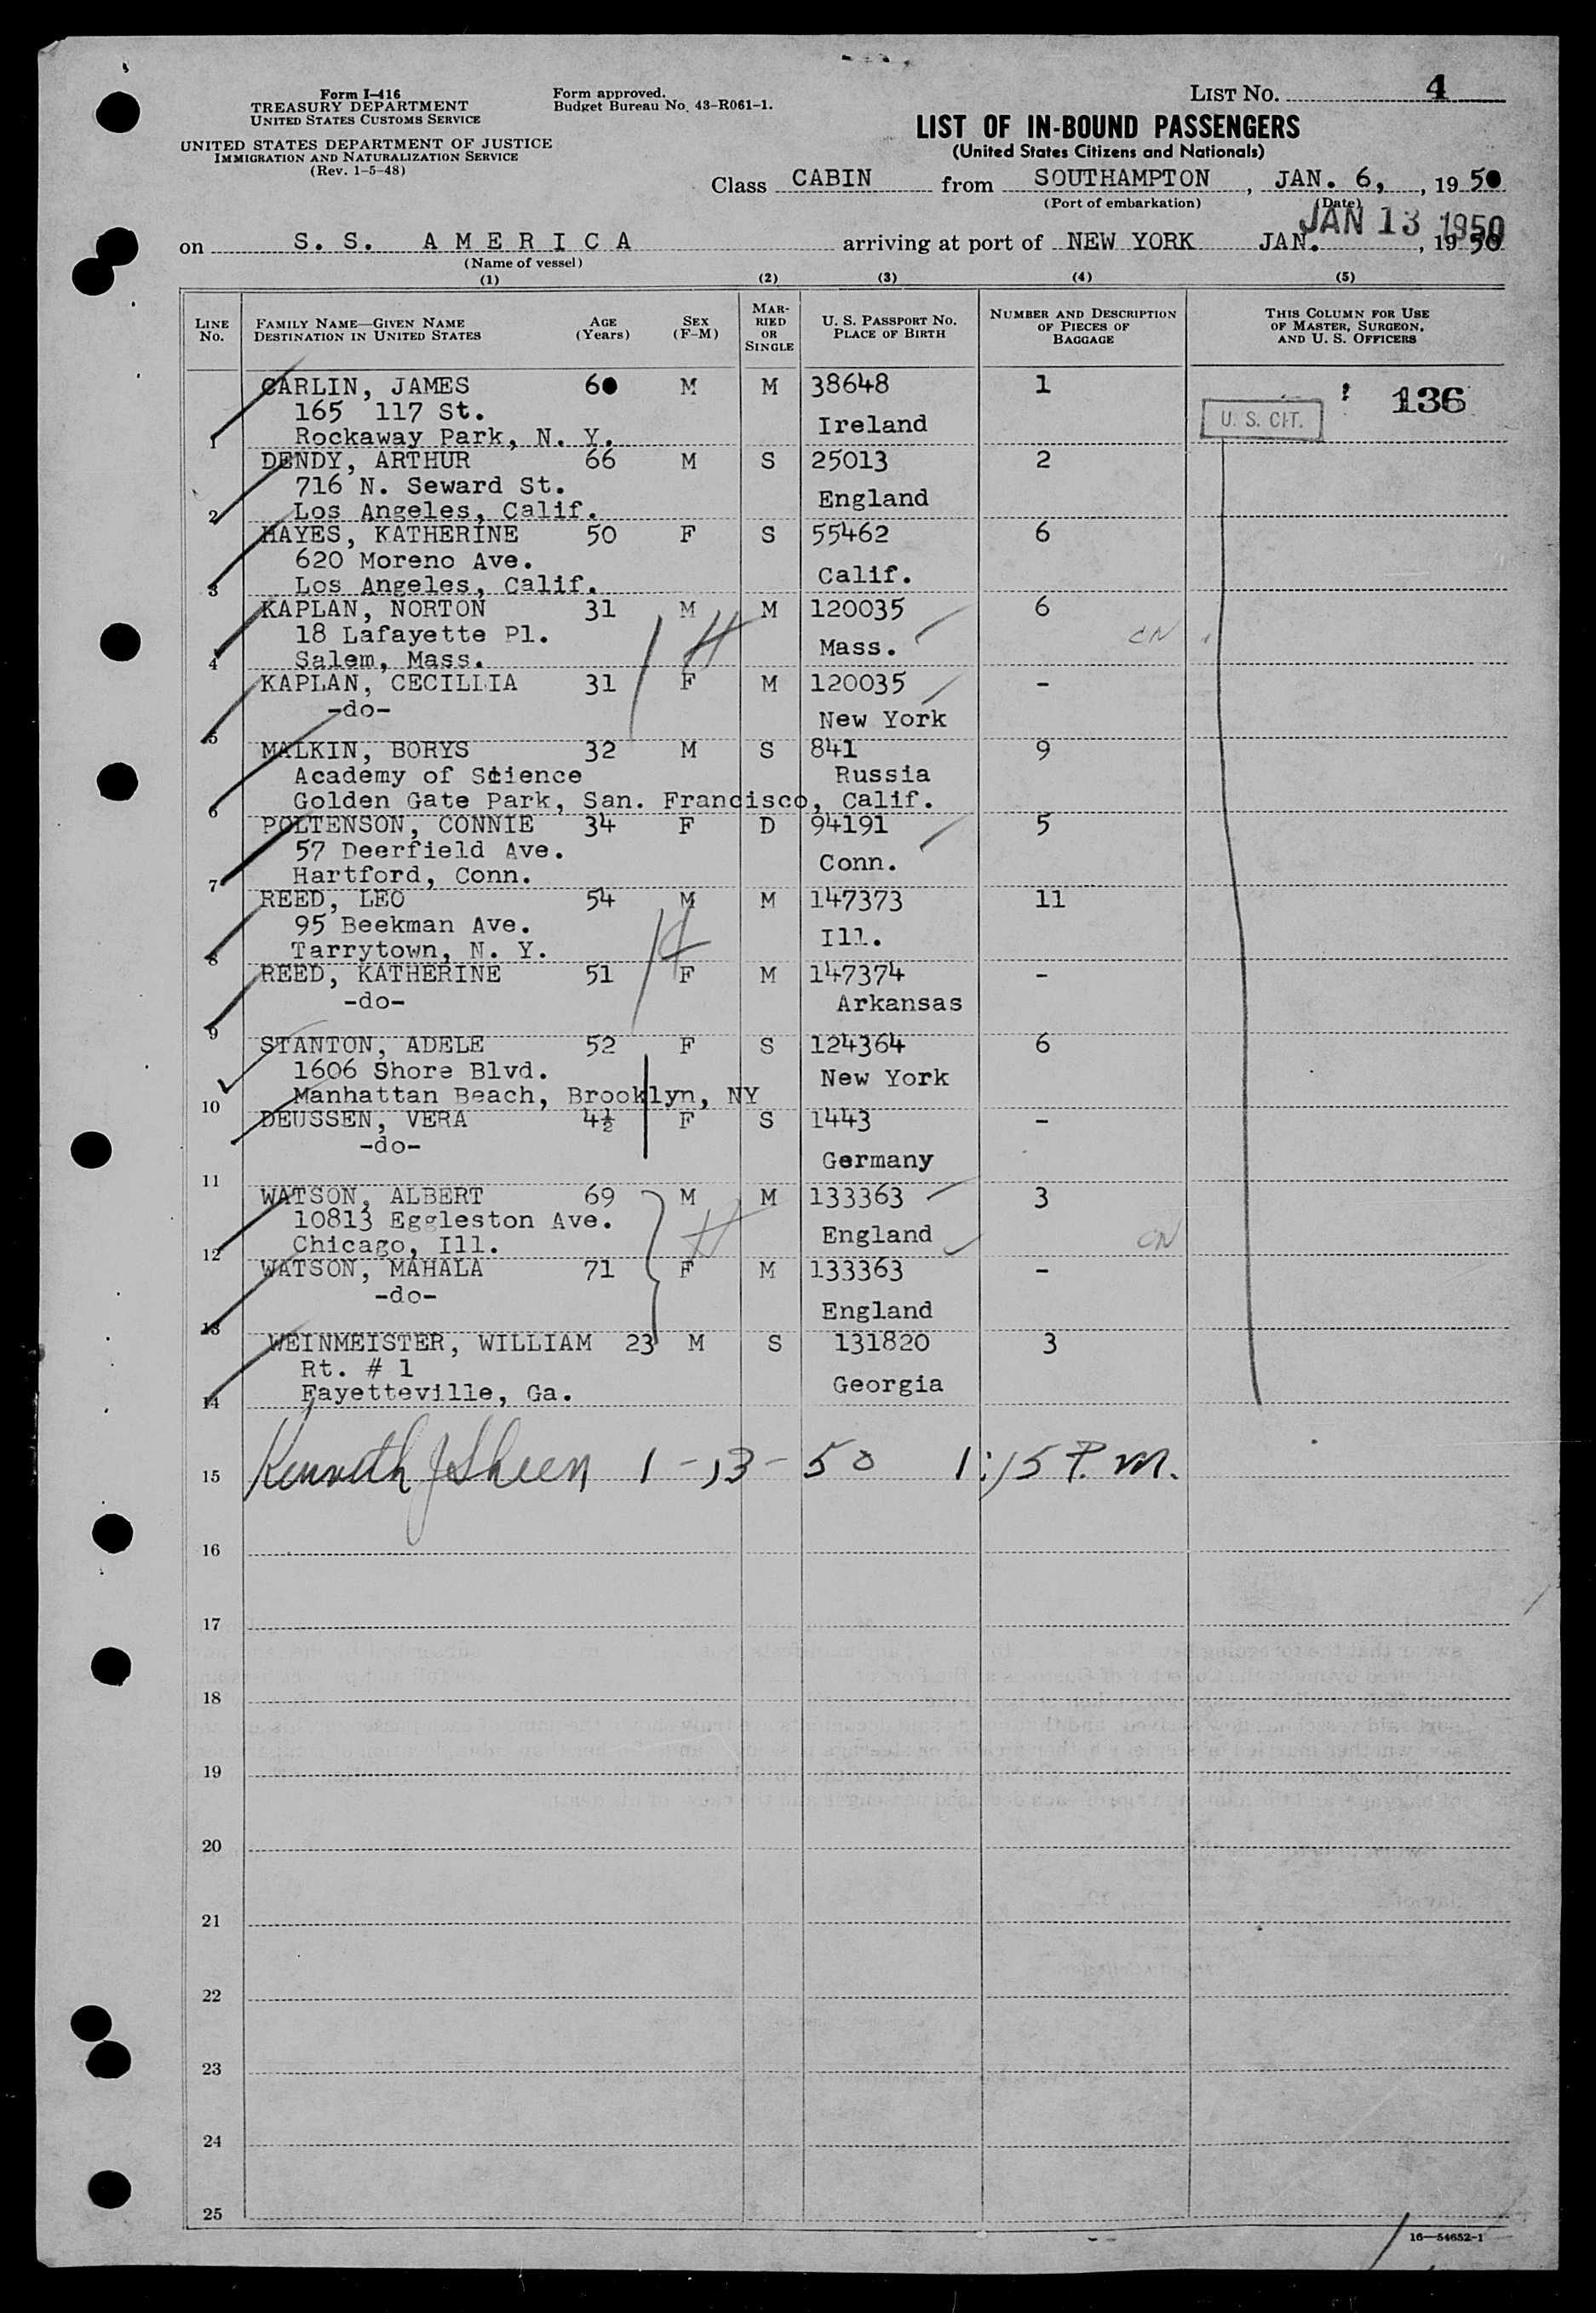 Form I-416
TREASURY DEPARTMENT
UNITED STATES CUSTOMS SERVICE
UNITED STATES DEPARTMENT OF JUSTICE
IMMIGRATION AND NATURALIZATION SERVICE
(Rev. 1-5-48)
Form approved.
Budget Bureau No. 43-R061-1.
LIST NO. 4
LIST OF IN-BOUND PASSENGERS
(United States Citizens and Nationals)
Class CABIN from SOUTHAMPTON, JAN. 6, 1950
(Port of embarkation) (Date)
JAN 13 1950
on S. S. AMERICA arriving at port of NEW YORK JAN. , 1950
(Name of vessel)
(1) (2) (3) (4) (5)
LINE No. FAMILY NAME—GIVEN NAME DESTINATION IN UNITED STATES AGE (Years) SEX (F-M) MARRIED OR SINGLE U. S. PASSPORT NO. PLACE OF BIRTH NUMBER AND DESCRIPTION OF PIECES OF BAGGAGE THIS COLUMN FOR USE OF MASTER, SURGEON, AND U. S. OFFICERS
CARLIN, JAMES 60 M M 38648 1 136
165 117 St. Ireland U. S. CIT.
1 Rockaway Park, N. Y.
DENDY, ARTHUR 66 M S 25013 2
716 N. Seward St. England
2 Los Angeles, Calif.
HAYES, KATHERINE 50 F S 55462 6
620 Moreno Ave. Calif.
3 Los Angeles, Calif.
KAPLAN, NORTON 31 M M 120035 6
18 Lafayette Pl. Mass. CN
4 Salem, Mass.
KAPLAN, CECILLIA 31 F M 120035 -
-do- New York
5
MALKIN, BORYS 32 M S 841 9
Academy of Science Russia
6 Golden Gate Park, San. Francisco, Calif.
POLTENSON, CONNIE 34 F D 94191 5
57 Deerfield Ave. Conn.
7 Hartford, Conn.
REED, LEO 54 M M 147373 11
95 Beekman Ave. Ill.
8 Tarrytown, N. Y.
REED, KATHERINE 51 F M 147374 -
-do- Arkansas
9
STANTON, ADELE 52 F S 124364 6
1606 Shore Blvd. New York
10 Manhattan Beach, Brooklyn, NY
DEUSSEN, VERA 4½ F S 1443 -
-do- Germany
11
WATSON, ALBERT 69 M M 133363 3
10813 Eggleston Ave. England CN
12 Chicago, Ill.
WATSON, MAHALA 71 F M 133363 -
-do- England
13
WEINMEISTER, WILLIAM 23 M S 131820 3
Rt. # 1 Georgia
14 Fayetteville, Ga.
15 Kenneth J Sheen 1-13-50 1:15 P.M.
16
17
18
19
20
21
22
23
24
25
16—54652-1